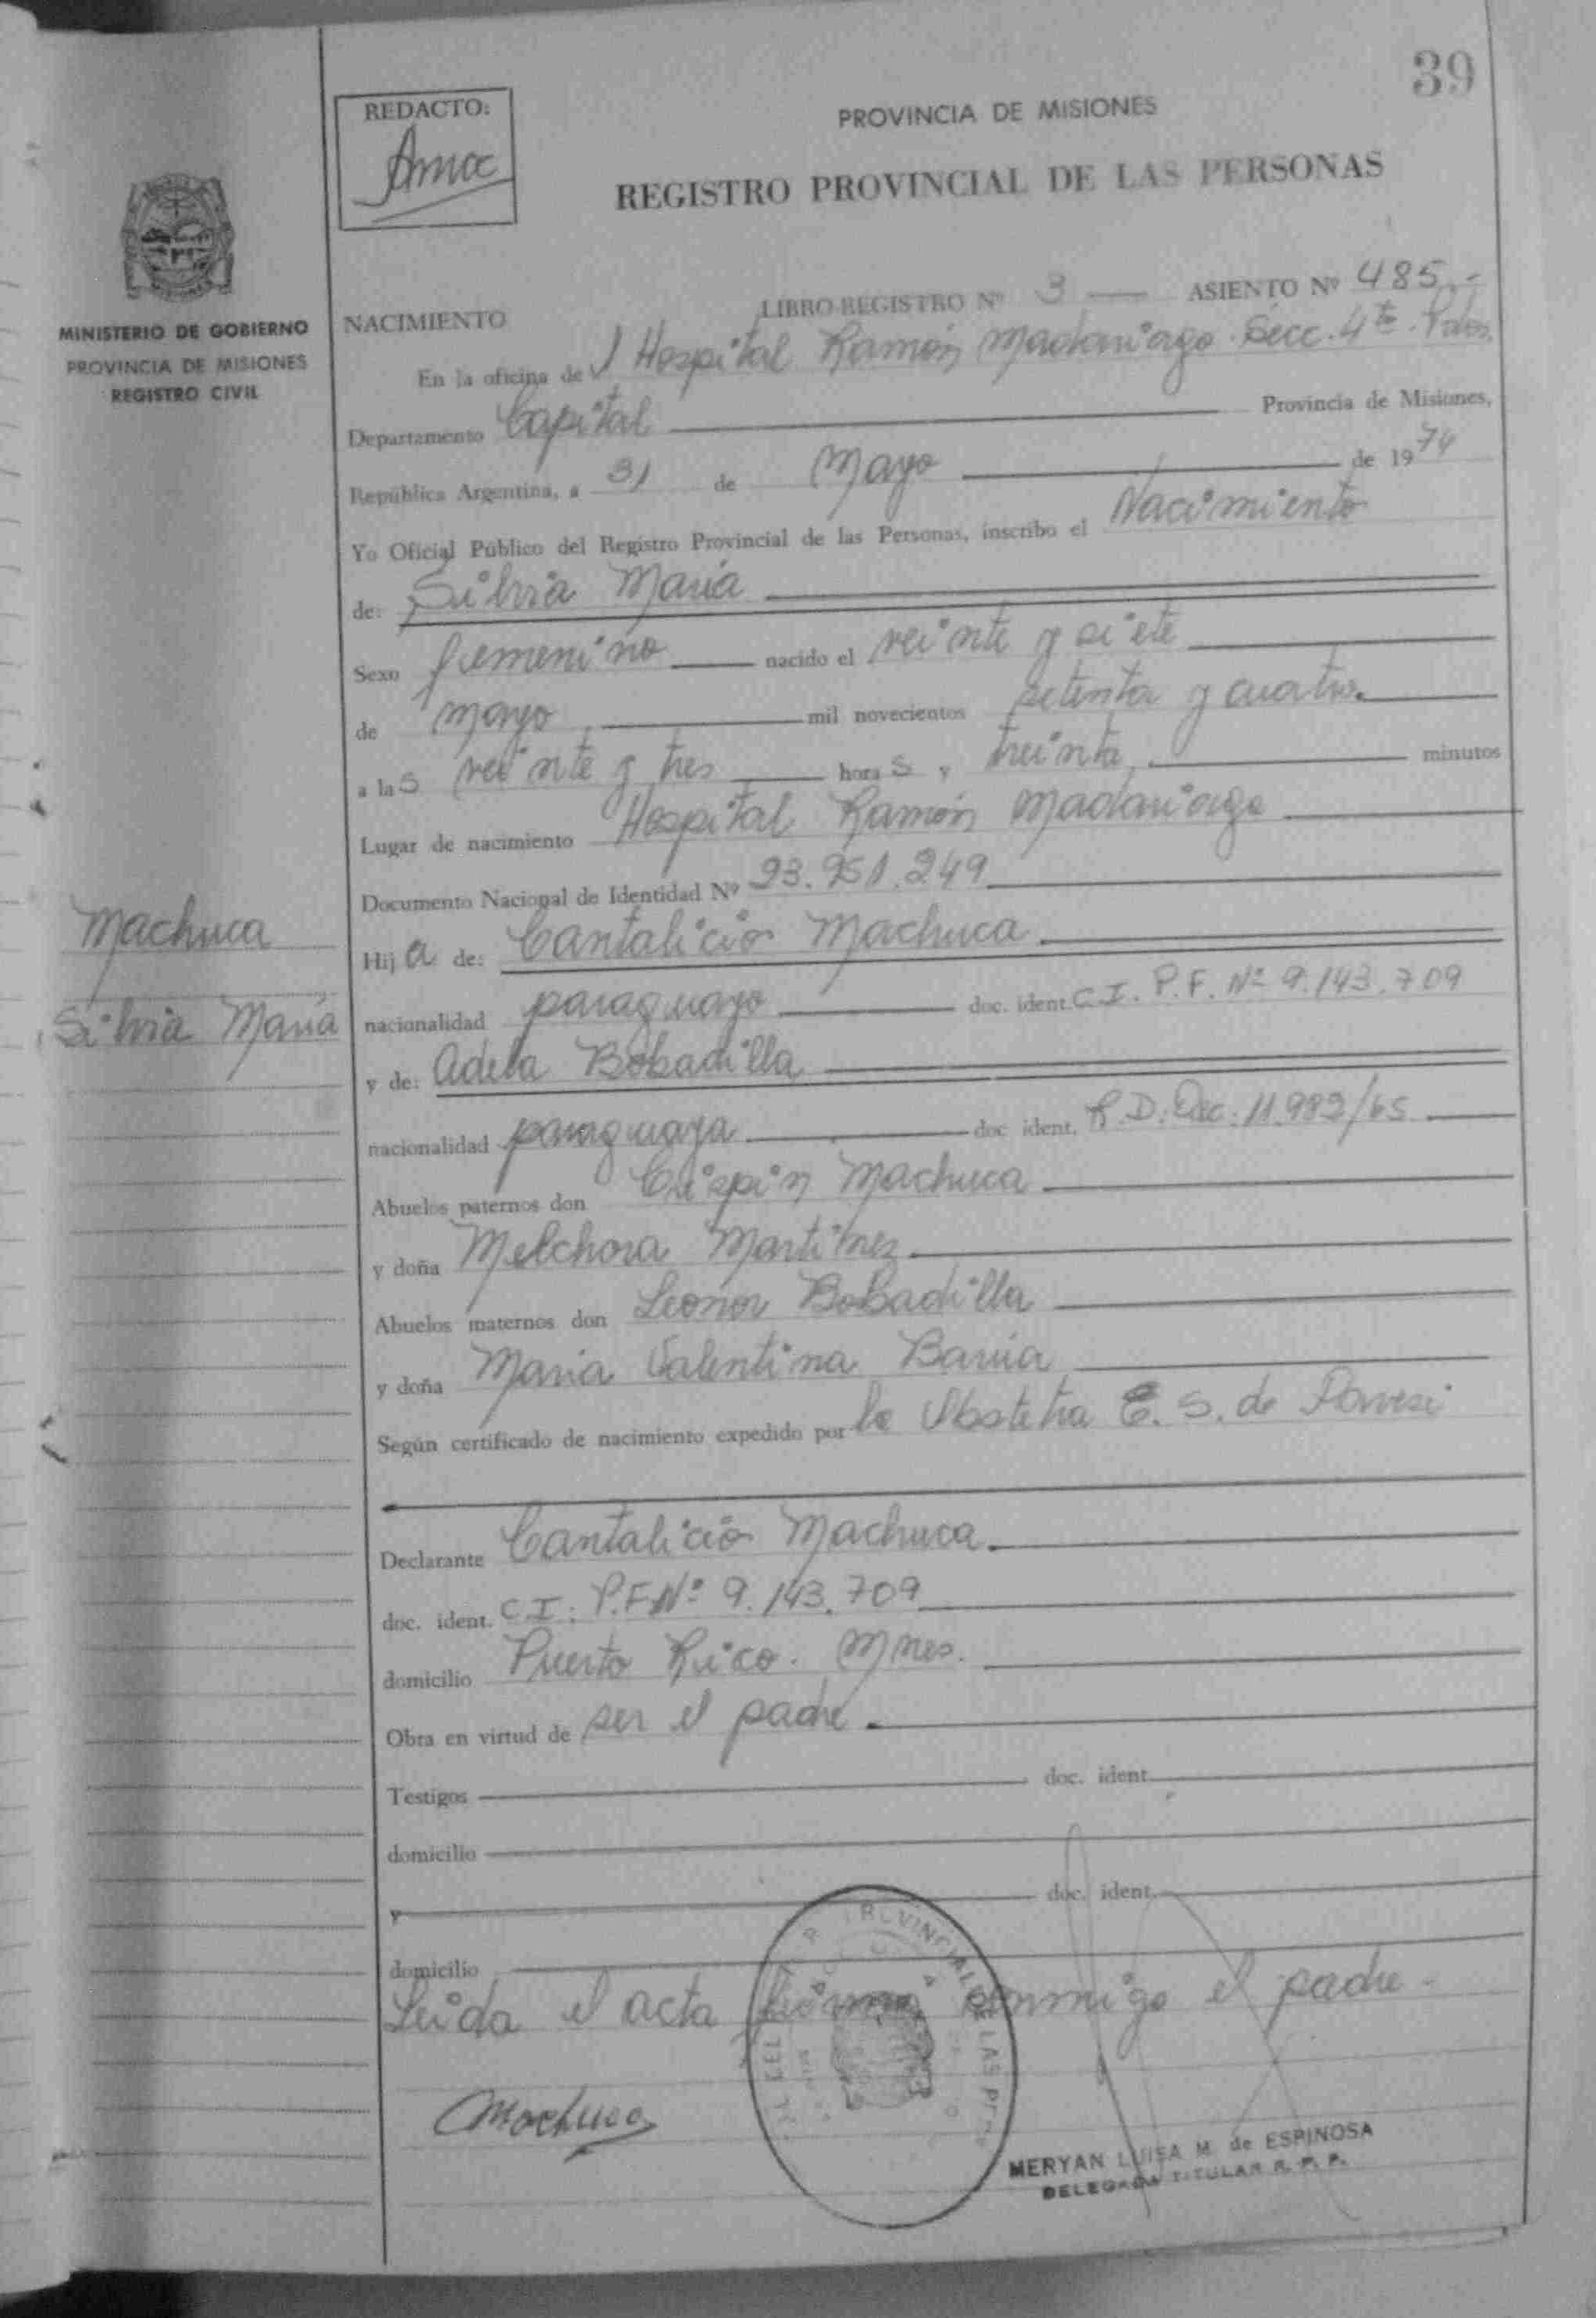 39
REDACTO:
PROVINCIA DE MISIONES
REGISTRO PROVINCIAL DE LAS PERSONAS
MINISTERIO DE GOBIERNO
PROVINCIA DE MISIONES
REGISTRO CIVIL
NACIMIENTO LIBRO REGISTRO Nº 3 ASIENTO Nº 485.-
En la oficina del Hospital Ramón Madariaga. Secc. 4ta. Pdas.
Departamento Capital Provincia de Misiones,
República Argentina, a 31 de Mayo de 1974
Yo Oficial Público del Registro Provincial de las Personas, inscribo el Nacimiento
de: Silvia María
Sexo femenino nacido el veinte y siete
de mayo mil novecientos setenta y cuatro.
a las veinte y tres horas y treinta minutos
Lugar de nacimiento Hospital Ramón Madariaga
Documento Nacional de Identidad Nº 23.951.249
Machuca
Silvia María
Hija de: Cantalicio Machuca
nacionalidad paraguayo doc. ident. C.I. P.F. Nº 9.143.709
y de: Adela Bobadilla
nacionalidad paraguaya doc ident. R.D. Dec. 11.983/65
Abuelos paternos don Crispin Machuca
y doña Melchora Martinez
Abuelos maternos don Leonor Bobadilla
y doña María Valentina Barúa
Según certificado de nacimiento expedido por la Obstetra E. S. de
Declarante Cantalicio Machuca.
doc. ident. C.I: P.F Nº 9.143.709
domicilio Puerto Rico. Mnes.
Obra en virtud de ser el padre.
Testigos doc. ident.
domicilio
y doc. ident.
domicilio
Leida el acta firma conmigo el padre.-
Machuca
MERYAN LUISA M. de ESPINOSA
DELEGADA TITULAR R. P. P.